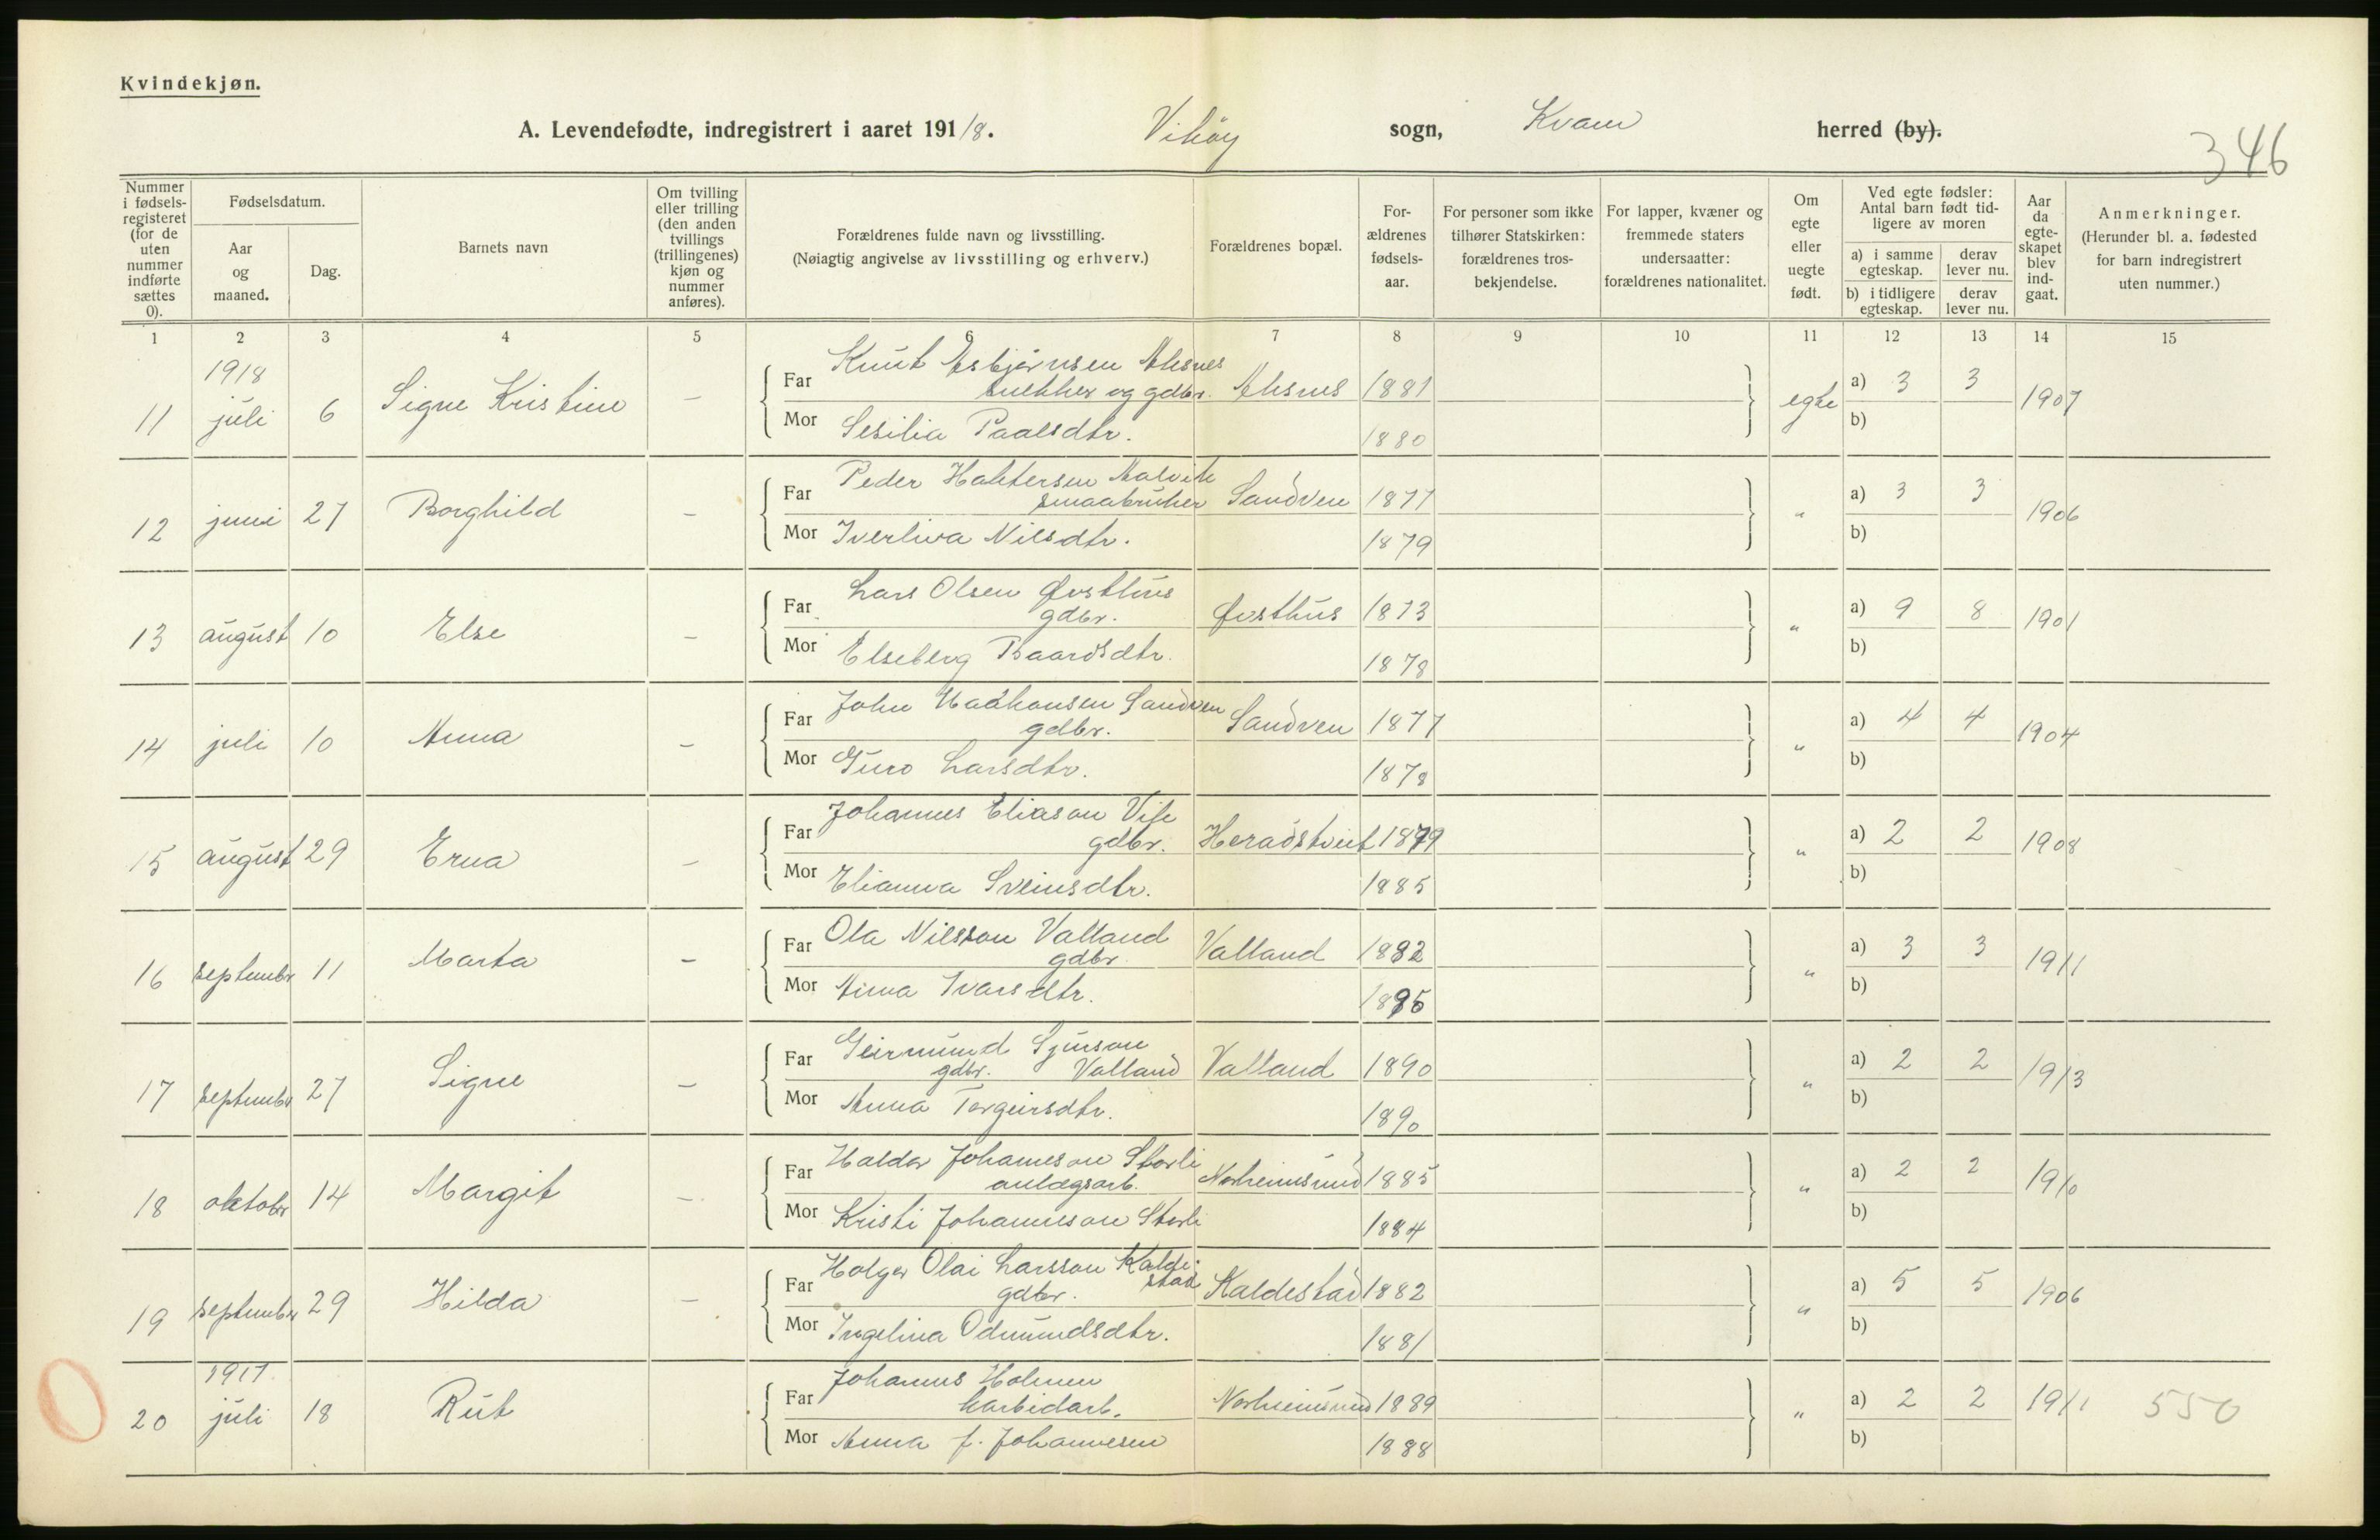 Kvindekjøn.
A. Levendefødte, indregistrert i aaret 1918. Vikøy sogn, Kvam herred (by).
346
Nummer i fødsels-registeret (for de uten nummer indførte sættes 0).
Fødselsdatum.
Aar og maaned.
Dag.
Barnets navn
Om tvilling eller trilling (den anden tvillings (trillingenes) kjøn og nummer anføres).
Forældrenes fulde navn og livsstilling. (Nøiagtig angivelse av livsstilling og erhverv.)
Forældrenes bopæl.
For-ældrenes fødsels-aar.
For personer som ikke tilhører Statskirken: forældrenes tros-bekjendelse.
For lapper, kvæner og fremmede staters undersaatter: forældrenes nationalitet.
Om egte eller uegte født.
Ved egte fødsler: Antal barn født tid-ligere av moren
a) i samme egteskap. derav lever nu.
b) i tidligere egteskap. derav lever nu.
Aar da egte-skapet blev ind-gaat.
Anmerkninger. (Herunder bl. a. fødested for barn indregistrert uten nummer.)
1 2 3 4 5 6 7 8 9 10 11 12 13 14 15
1918
11 juli 6 Signe Kristine – Far Knut Asbjørnsen Aksnes
snekker og gdbr. Aksnes 1881 egte a) 3 3 1907
Mor Sesilia Paalsdtr. 1880 b)
12 juni 27 Borghild – Far Peder Haktorsen Aalvik
smaabruker Sandven 1877 " a) 3 3 1906
Mor Iverliva Nilsdtr. 1879 b)
13 august 10 Else – Far Lars Olsen Øvsthus
gdbr. Øvsthus 1873 " a) 9 8 1901
Mor Elseberg Baardsdtr. 1878 b)
14 juli 10 Anna – Far John Haakonsen Sandven
gdbr. Sandven 1877 " a) 4 4 1904
Mor Guro Larsdtr. 1878 b)
15 august 29 Erna – Far Johannes Eliason
gdbr. Heradstveit 1879 " a) 2 2 1908
Mor Elianna Sveinsdtr. 1885 b)
16 septembr 11 Marta – Far Ola Nilsson Valland
gdbr. Valland 1882 " a) 3 3 1911
Mor Anna Ivarsdtr. b)
17 septembr 27 Signe – Far Geirmund Sjurson
gdbr. Valland Valland 1890 " a) 2 2 1913
Mor Anna Torgeirsdtr. 1890 b)
18 oktobr 14 Margit – Far Haldor Johanneson Storli
anlægsarb. Norheimsund 1885 " a) 2 2 1910
Mor Kristi Johanneson Storli 1884 b)
19 septembr 29 Hilda – Far Holger Olai Larsson Kalde-
stad
gdbr. Kaldestad 1882 " a) 5 5 1906
Mor Ingelina Odmundsdtr. 1881 b)
1917.
20 juli 18 Rut Far Johannes Holmen
karbidarb. Norheimsund 1889 " a) 2 2 1911 550
Mor Anna f. Johannesen 1888 b)
0